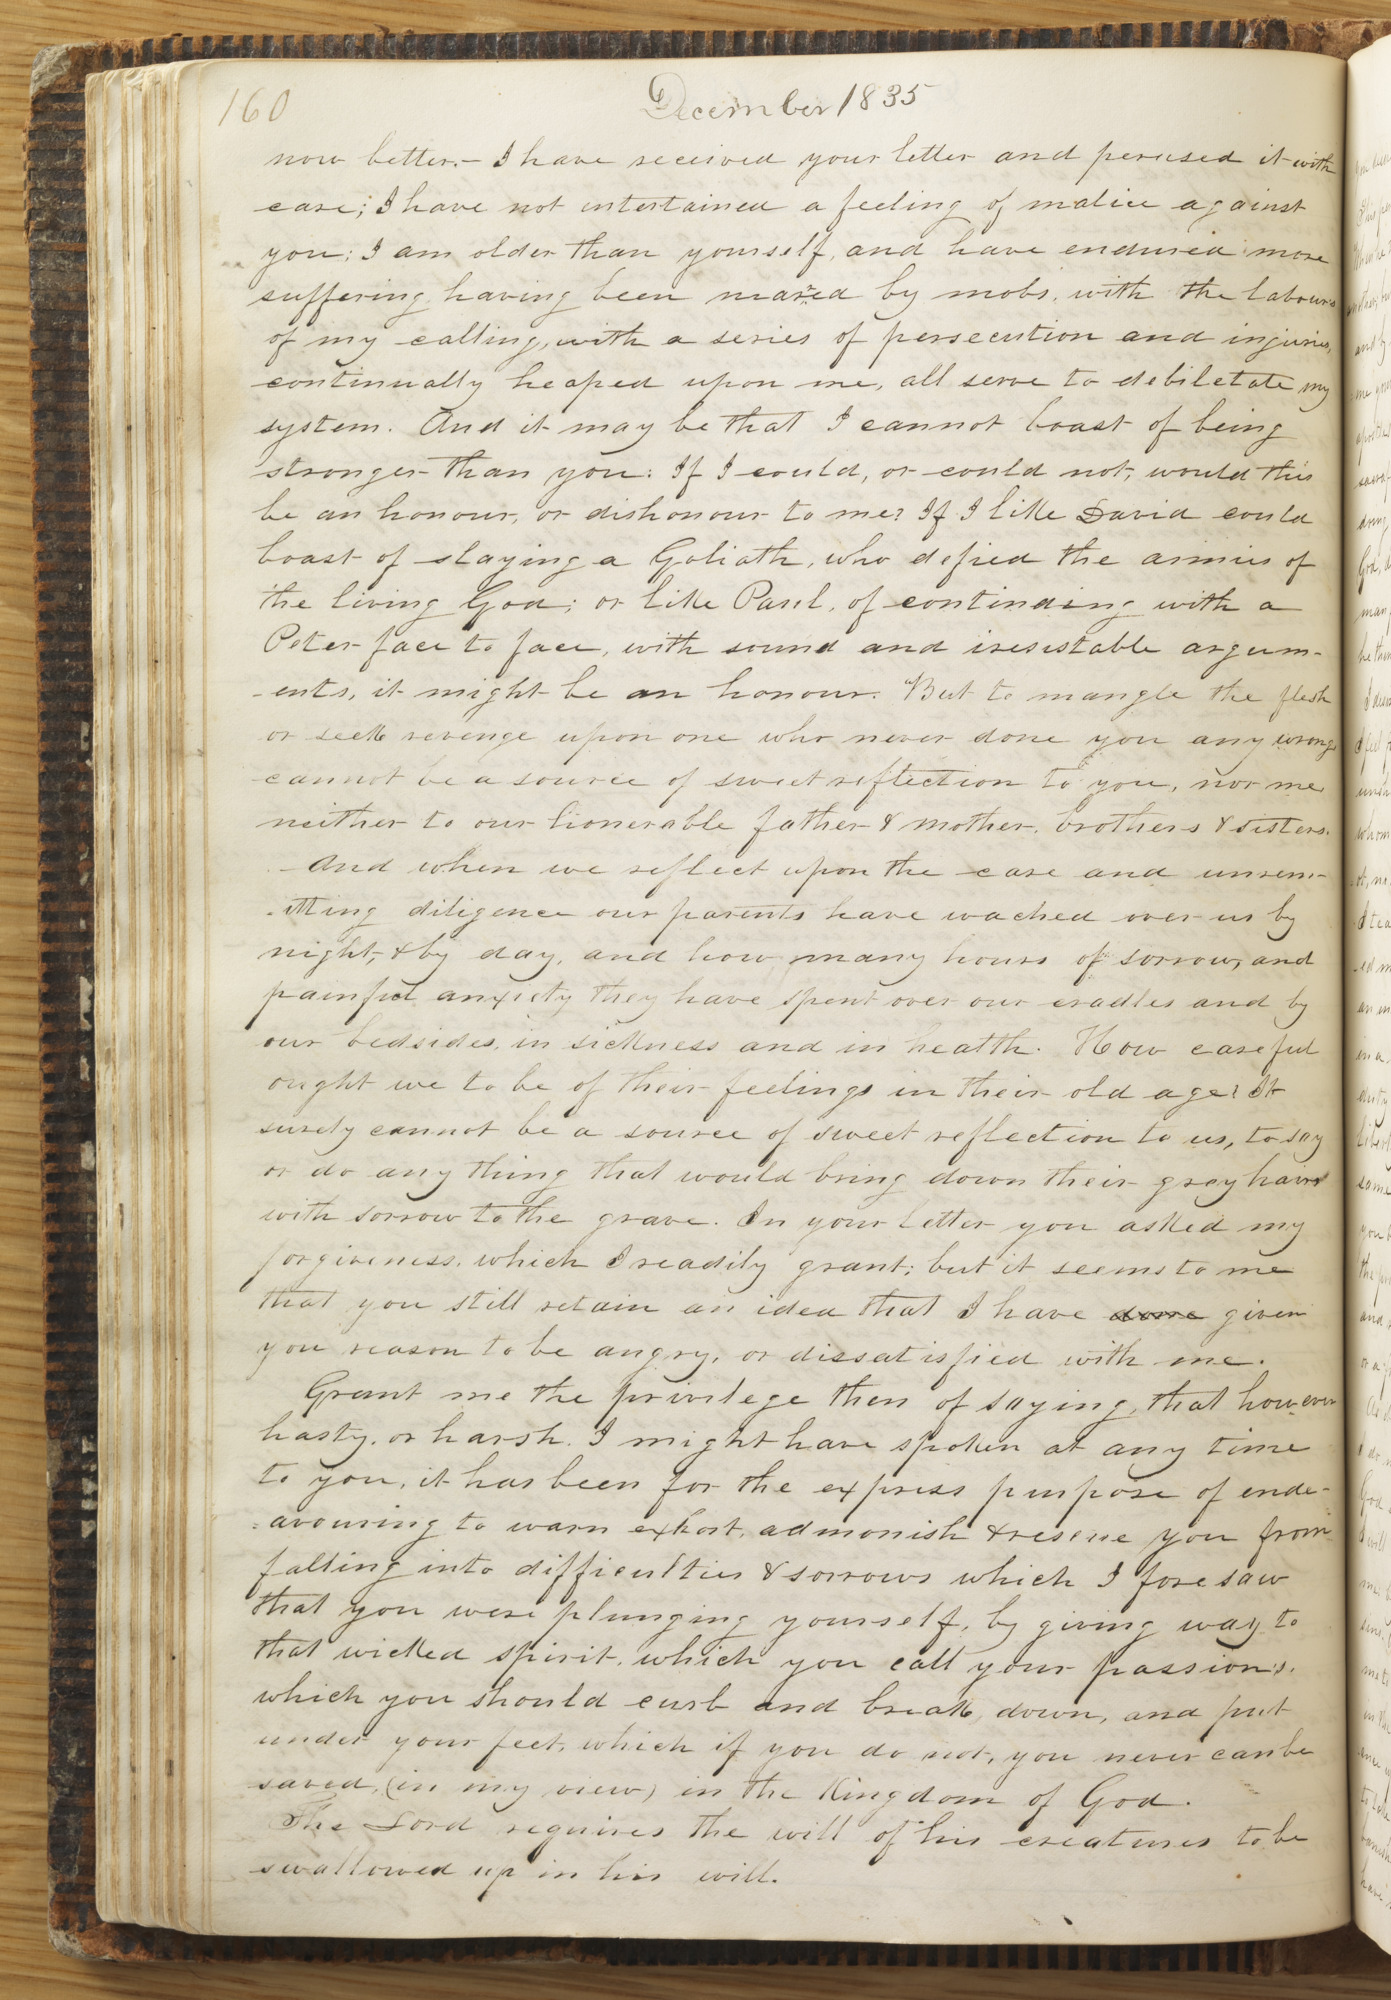 160
December 1835
now better.- I have received your letter and perused it with
care; I have not entertained a feeling of malice against
you; I am older than yourself, and have endured more
suffering, having been marred by mobs, with the labours
of my calling, with a series of persecution and injuries,
continually heaped upon me, all serve to debiletate my
system. And it may be that I cannot boast of being
stronger than you: If I could, or could not, would this
be an honour, or dishonour to me? If I like David could
boast of slaying a Goliath, who defied the armies of
the living God; or like Paul, of continding with a
Peter face to face, with sound and iresistable argum-
-ents, it might be an honour. But to mangle the flesh
or seek revenge upon one who never done you any wrong
cannot be a source of sweet reflection to you, nor me
neither to our honerable father & mother, brothers & sisters.
- And when we reflect upon the care and unrem-
-itting diligence our parents have wached over us by
night, & by day, and how many hours of sorrow, and
painful anxiety they have spent over our cradles and by
our bedsides, in sickness and in health. How careful
ought we to be of their feelings in their old age? It
surely cannot be a source of sweet reflection to us, to say
or do any thing that would bring down their gray hairs
with sorrow to the grave. In your letter you asked my
forgiveness, which I readily grant; but it seems to me
that you still retain an idea that I have done given
you reason to be angry, or dissatisfied with me.
Grant me the privilege then of saying, that however
hasty, or harsh. I might have spoken at any time
to you, it has been for the express purpose of ende-
-avouring to warn exhort, admonish & rescue you from
falling into difficulties & sorrows which I foresaw
that you were plunging yourself, by giving way to
that wicked spirit, which you call your passions,
which you should curb and break down, and put
under your feet, which if you do not, you never can be
saved, (in my view) in the Kingdom of God.
The Lord requires the will of his creatures to be
swallowed up in his will.